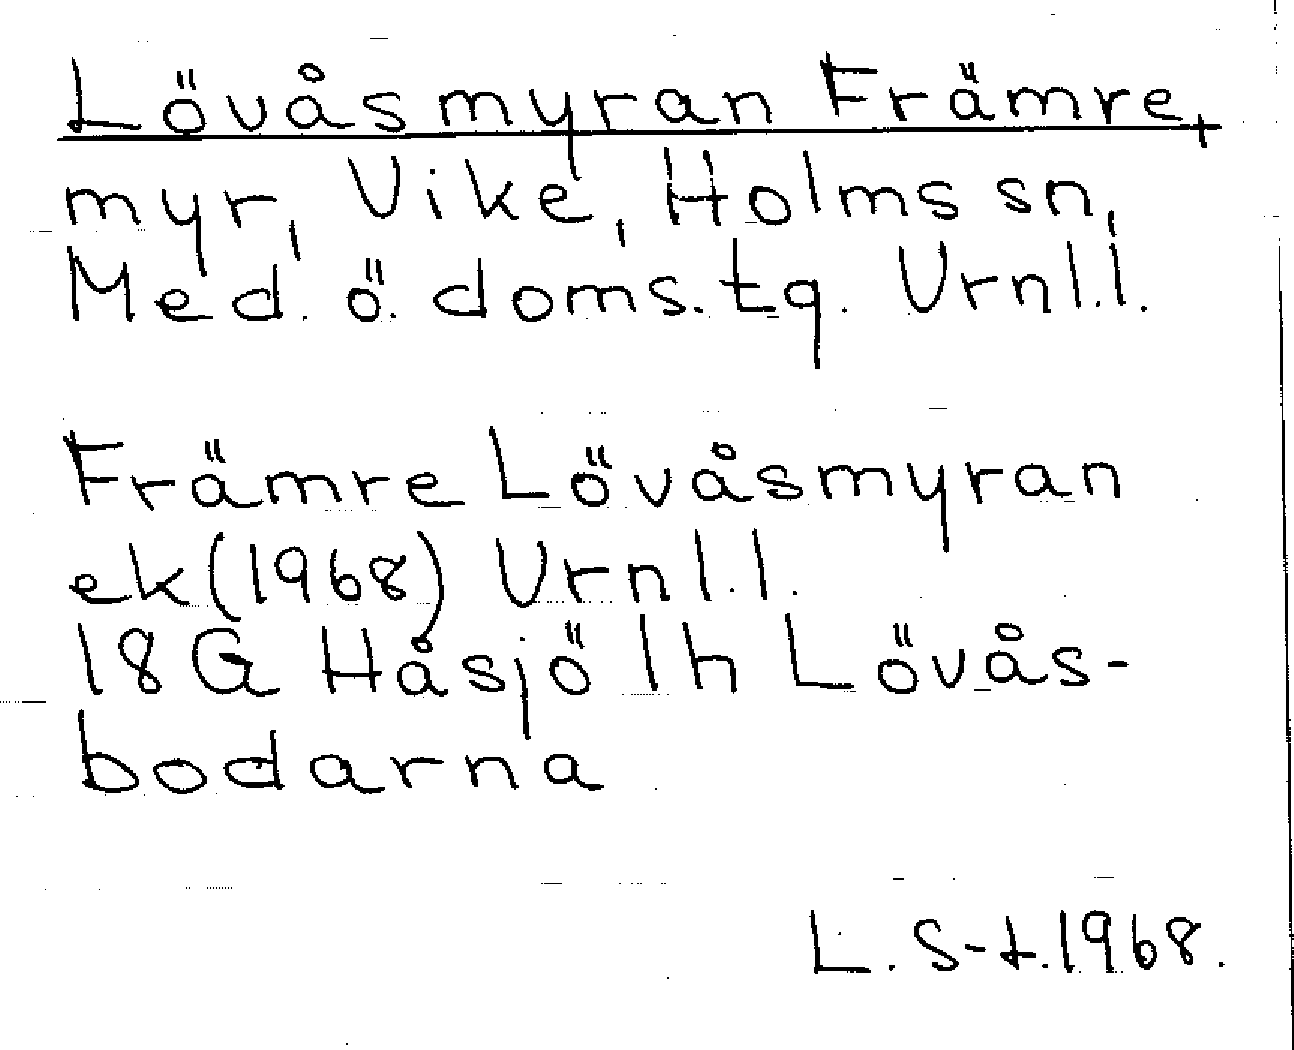 Lövåsmyran Främre,
myr, Vike, Holms sn,
Med. ö. doms. tg. Vrnl.l.
Främre Lövåsmyran
ek (1968) Vrnl.l.
18G Håsjö 1h Lövås-
bodarna
L. S-t. 1968.